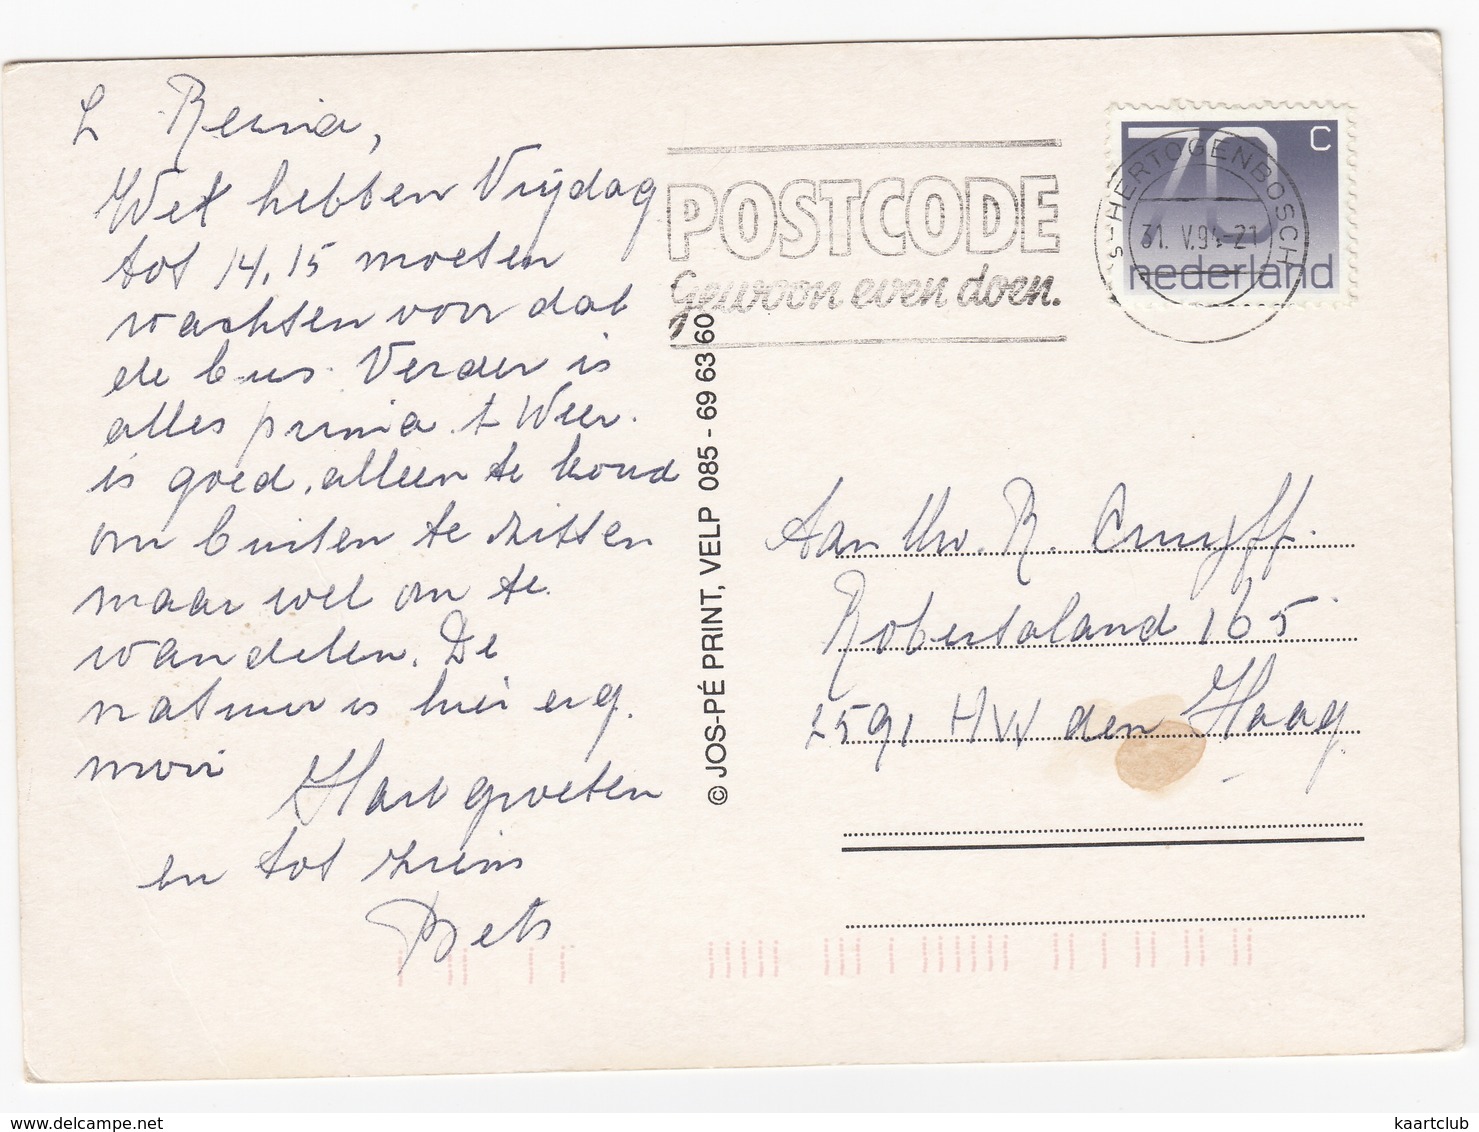 L Reina,
Wet hebben Vrijdag
tot 14.15 moeten
wachten voor dat
de bus. Verder is
alles prima. t Weer.
is goed, alleen te koud
om buiten te zitten
maar wel om te.
wandelen. De
natuur is hier erg.
mooi
Hart groeten
en tot ziens
Bets
POSTCODE
Gewoon even doen.
70 c
nederland
'S-HERTOGENBOSCH
31. V.94-21
© JOS-PÉ PRINT, VELP 085 - 69 63 60
Aan Mw. R. Cruyff.
Robertaland 165
2591 HW den Haag.
www.delcampe.net
kaartclub